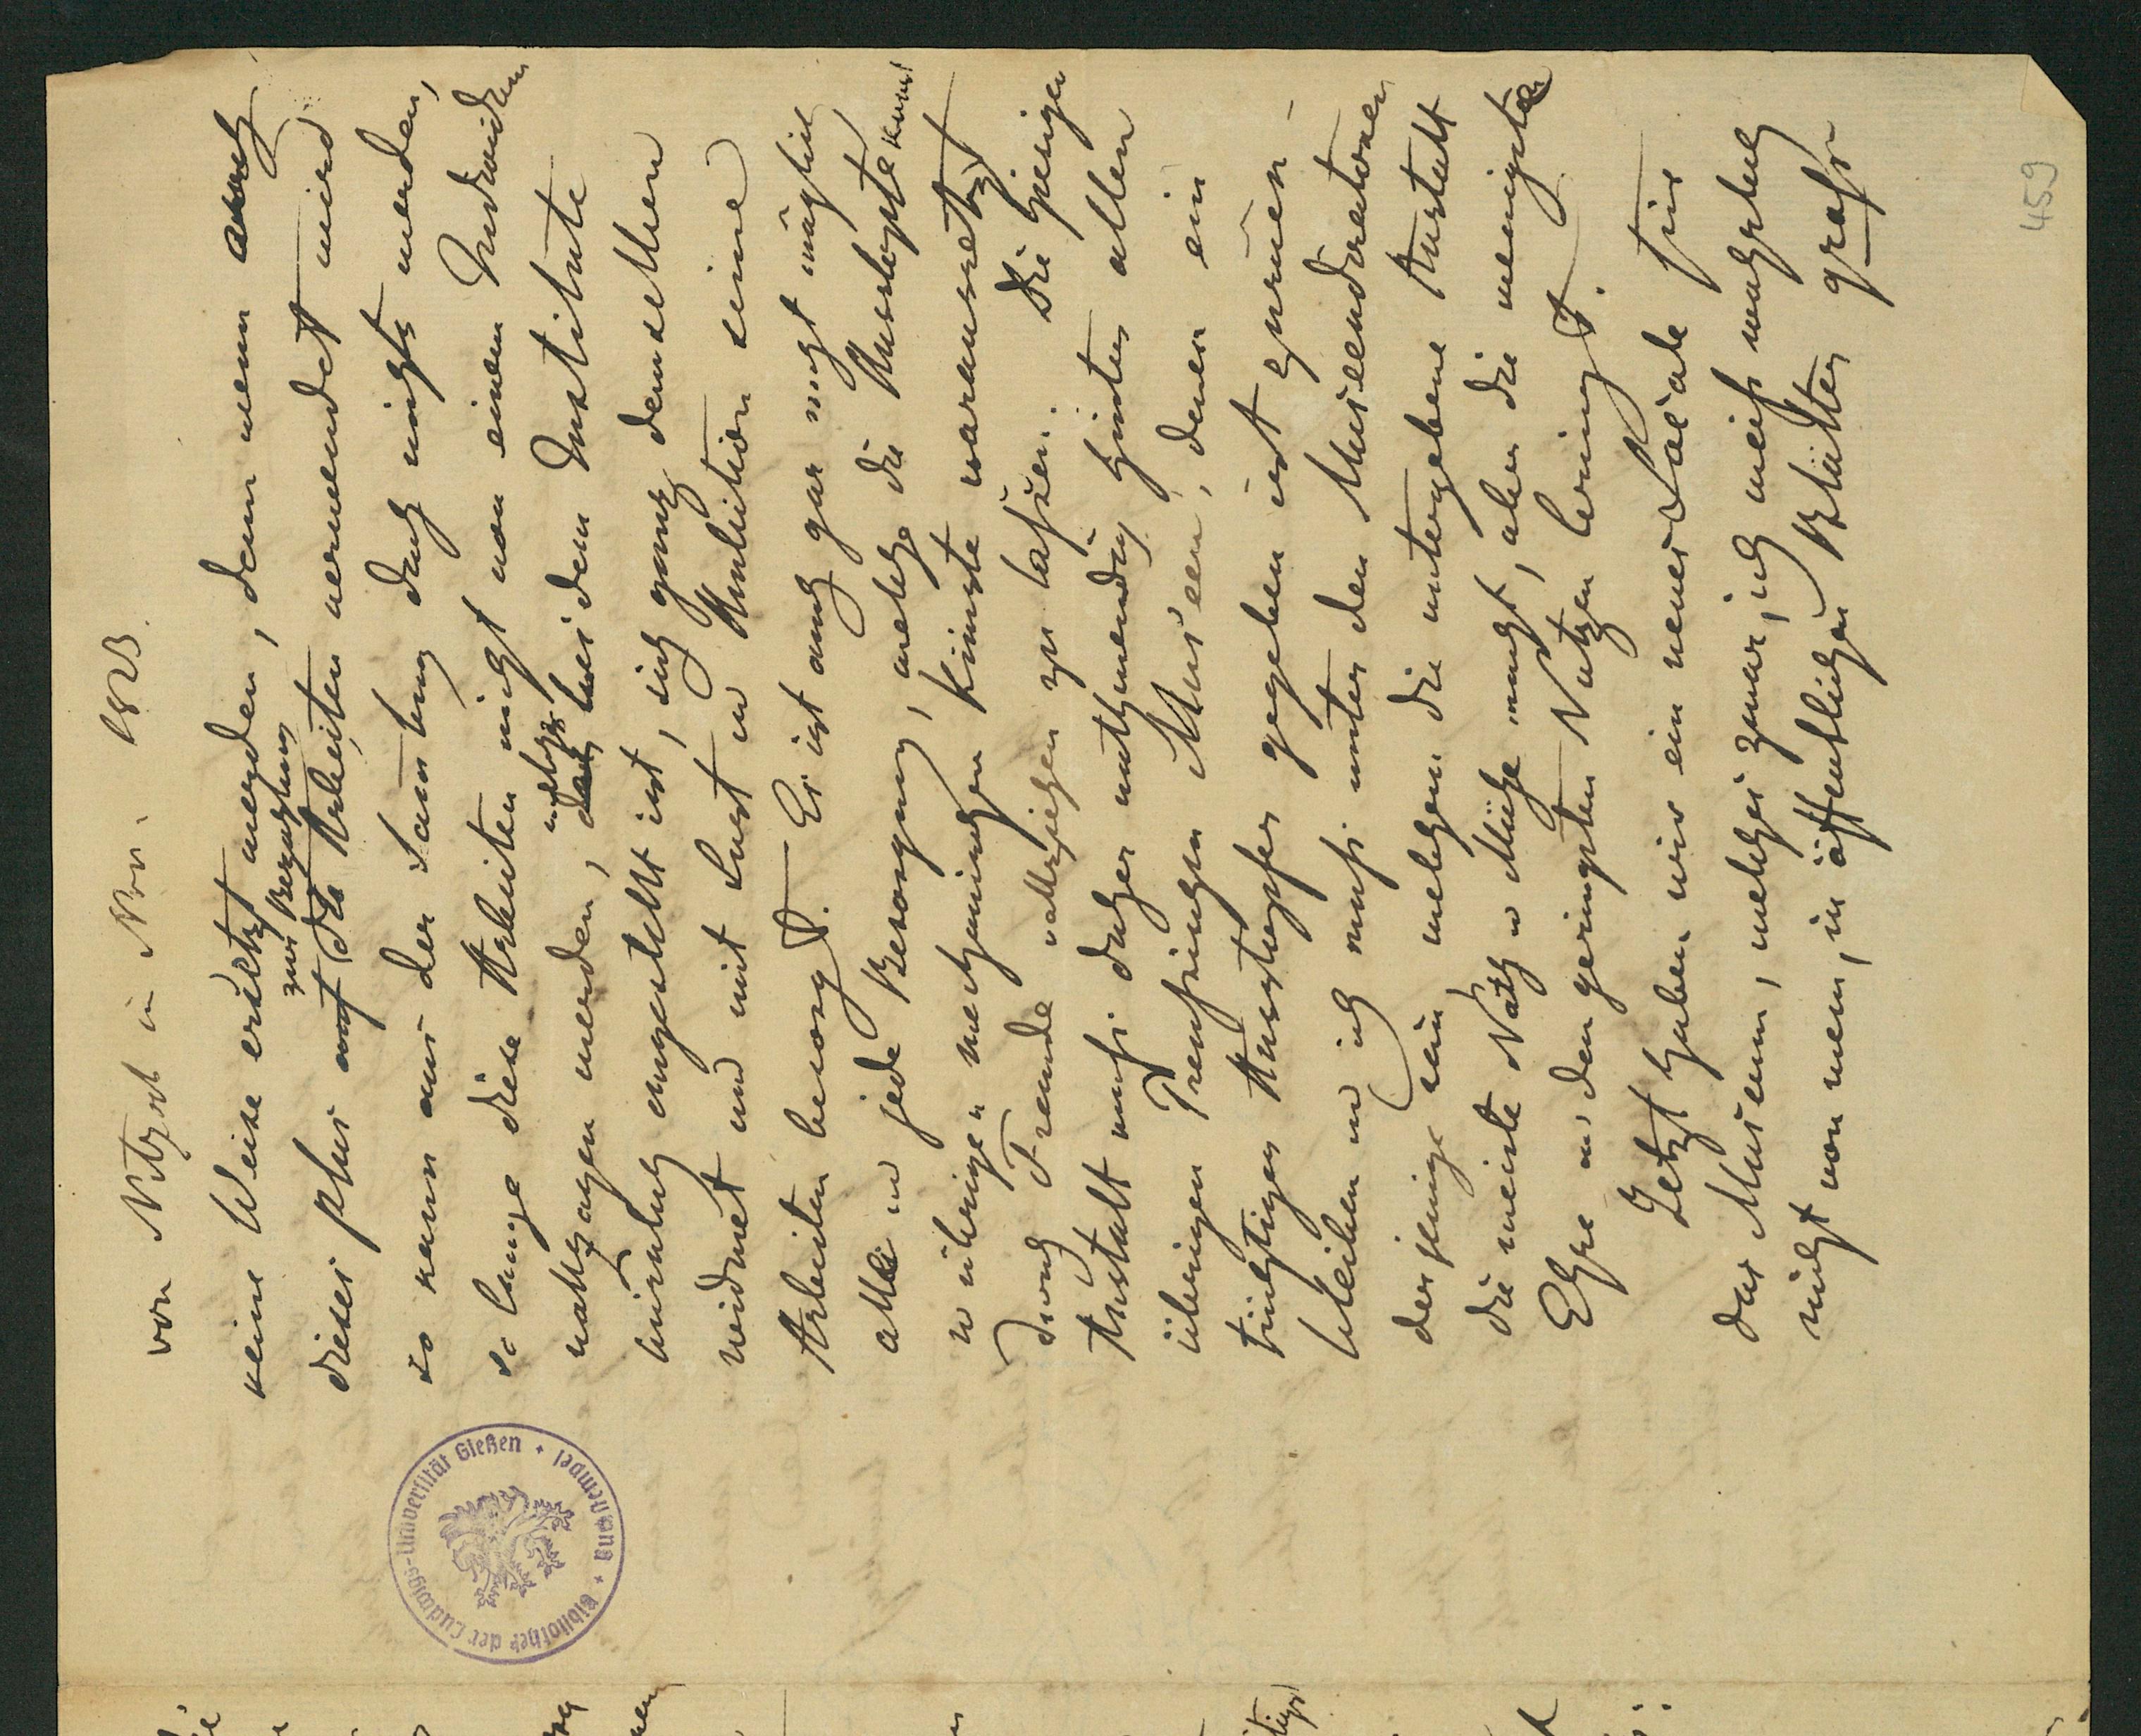 von Nitzsch in Nov. 1833.
keine Weise ersetzt werden, denn wenn auch
dieses plus auf die Arbeiten verwendet wird
zur Bezahlung
so kann aus der Sammlung doch nichts werden,
so lange diese Arbeiten nicht von einem Individuum
vollzogen werden, welches bei dem Institute
wirklich angestellt ist, sich ganz demselben
widmet und mit Lust u Ambition seine
Arbeiten besorgt. Es ist auch gar nicht möglich
alle u jede Besorgung, welche die Ausstopfekunst
u übrigen mechanischen Künste voraussetzt
durch Fremde vollziehen zu lassen. Die hiesige
Anstalt muß daher nothwendig hinter allen
übrigen Preußischen Museen, denen ein
tüchtiger Ausstopfer gegeben ist zurück-
bleiben u ich muß unter den Museendirektoren
derjenige sein welchem die untergebene Anstalt
die meiste Noth u Mühe macht, aber die wenigste
Ehre u den geringsten Nutzen bringt.
Jetzt haben wir ein neues Locale für
das Museum, welches zwar, ich weiß wahrlich
nicht von wem, in öffentlichen Blätter groß
459
Bibliothek der Ludwigs-Universität Gießen • Buchhandel